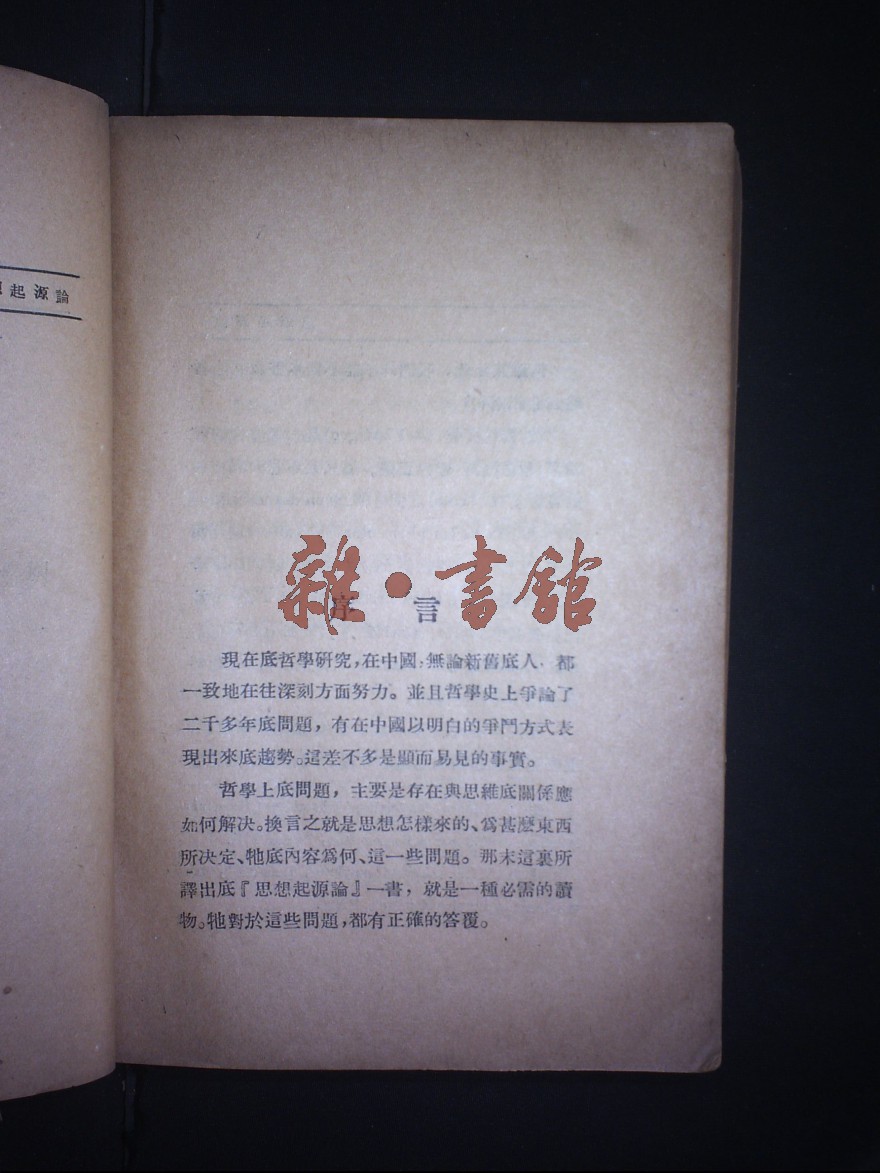 起源論
雜·書館
序言
現在底哲學研究，在中國，無論新舊底人，都
一致地在往深刻方面努力。並且哲學史上爭論了
二千多年底問題，有在中國以明白的爭鬥方式表
現出來底趨勢。這差不多是顯而易見的事實。
哲學上底問題，主要是存在與思維底關係應
如何解決。換言之就是思想怎樣來的、爲甚麼東西
所決定、牠底內容爲何、這一些問題。那末這裏所
譯出底『思想起源論』一書，就是一種必需的讀
物。牠對於這些問題，都有正確的答覆。